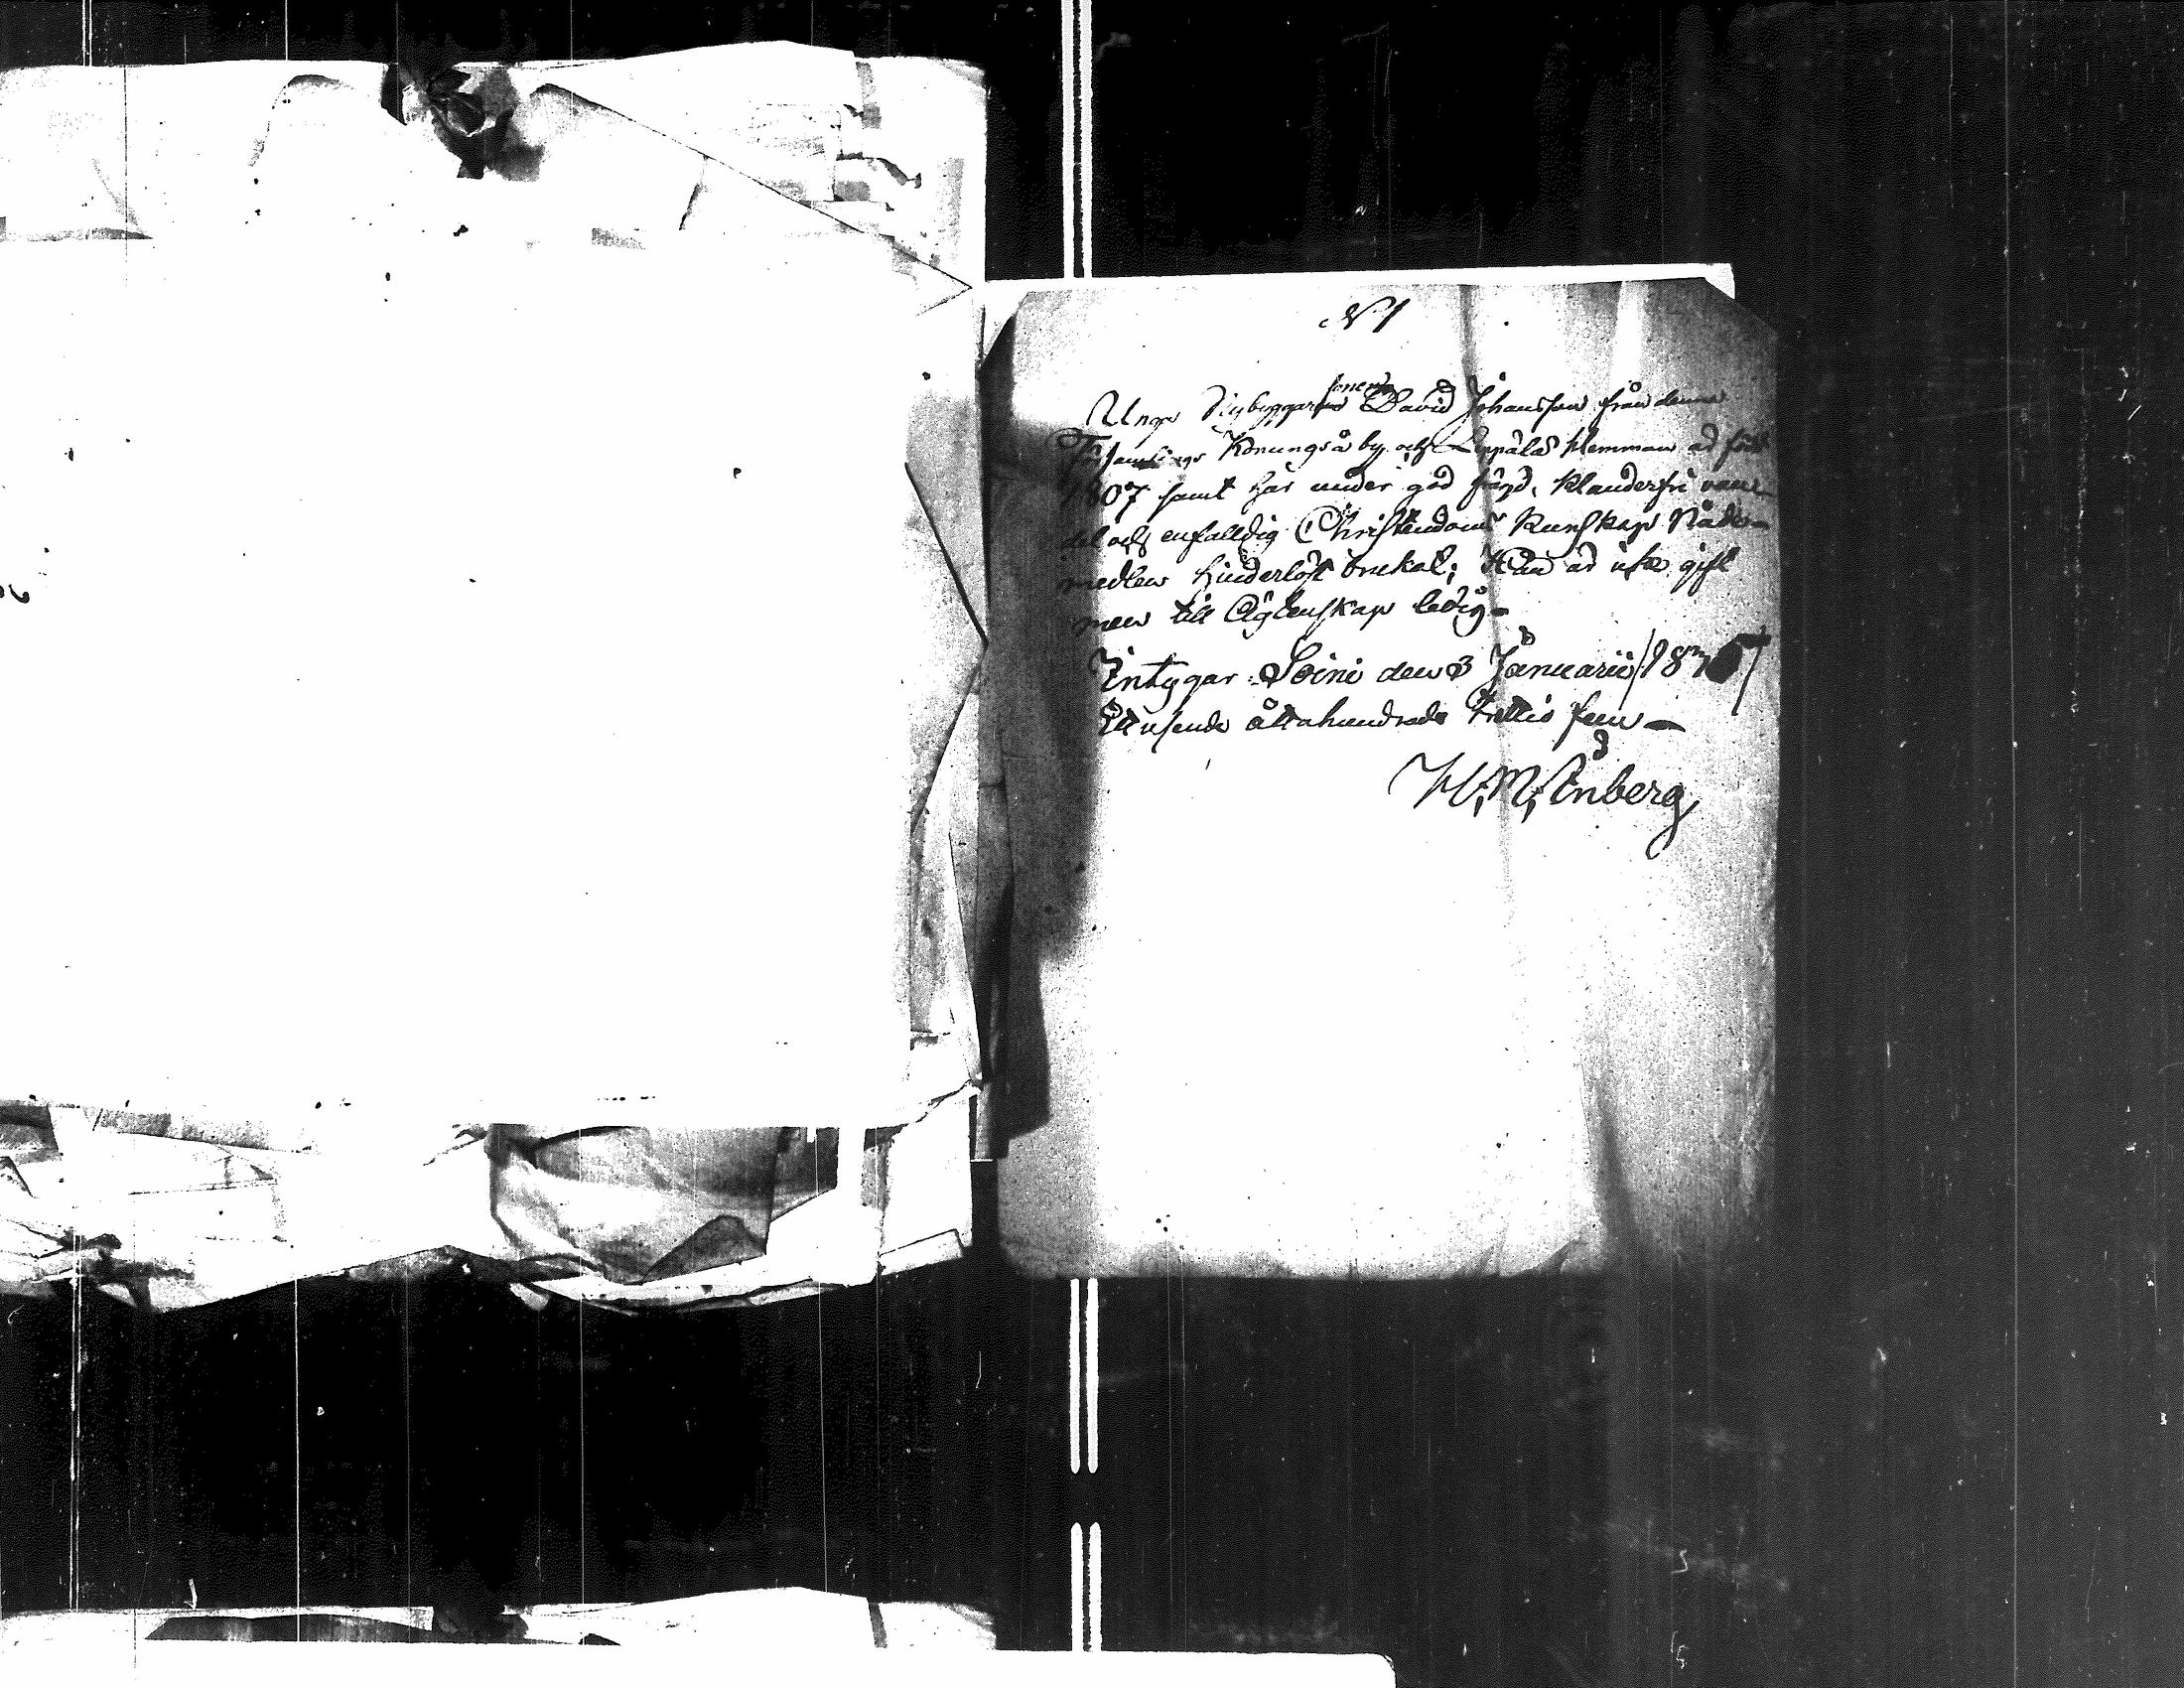 N 1
Unge Nybyggare sonen David Johansson från denna
Församlings Konungså by och Leppälä Hemman är född
1807 samt har under god frägd, klanderfri van-
del och enfalldig Christendoms Kunskap Nåde-
medlen hinderlöst brukat; Han är icke gift
men till Ägtenskap ledig-
Intygar Soini den 3 Januarii 1835
Ettusende åttahundrade trettio fem —
H. M. Enberg